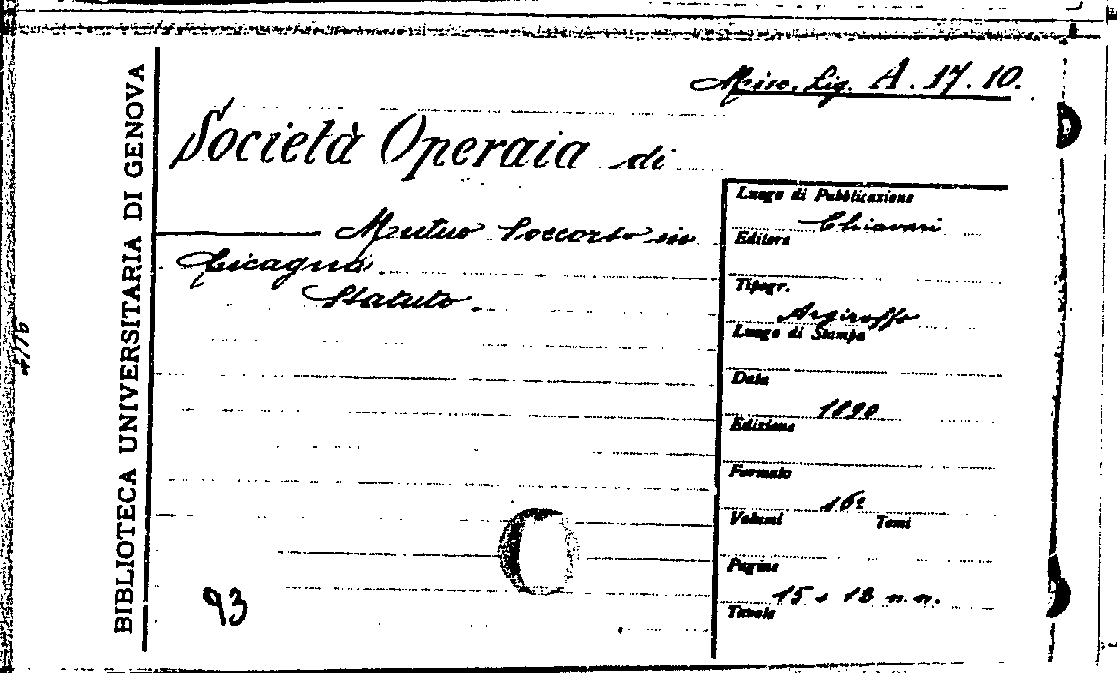 BIBLIOTECA UNIVERSITARIA DI GENOVA
Misc. Lig. A. 17. 10.
Società Operaia di
Mutuo Soccorso in
Cicagna.
Statuto.
93
Luogo di Pubblicazione
Chiavari
Editore
Tipogr.
Argiroffo
Luogo di Stampa
Data
1890
Edizione
Formato
16º
Volumi Tomi
Pagine
15 + 12 n. n.
Tavole